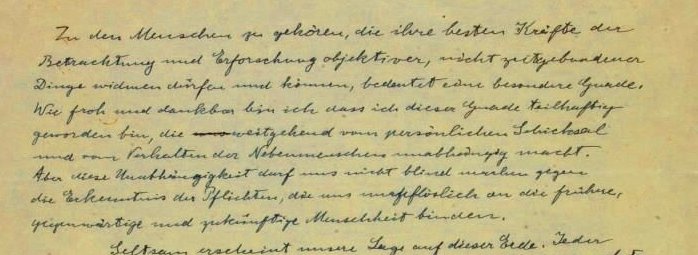 Zu den Menschen zu gehören, die ihre besten Kräfte der
Betrachtung und Erforschung objektiver, nicht zeitgebundener
Dinge widmen dürfen und können, bedeutet eine besondere Gnade.
Wie froh und dankbar bin ich dass ich dieser Gnade teilhaftig
geworden bin, die weitgehend vom persönlichen Schicksal
und vom Verhalten der Nebenmenschen unabhängig macht.
Aber diese Unabhängigkeit darf uns nicht blind machen gegen
die Erkenntnis der Pflichten, die uns unaufhörlich an die frühere,
gegenwärtige und zukünftige Menschheit binden.
Seltsam erscheint unsere Lage auf dieser Erde. Jeder